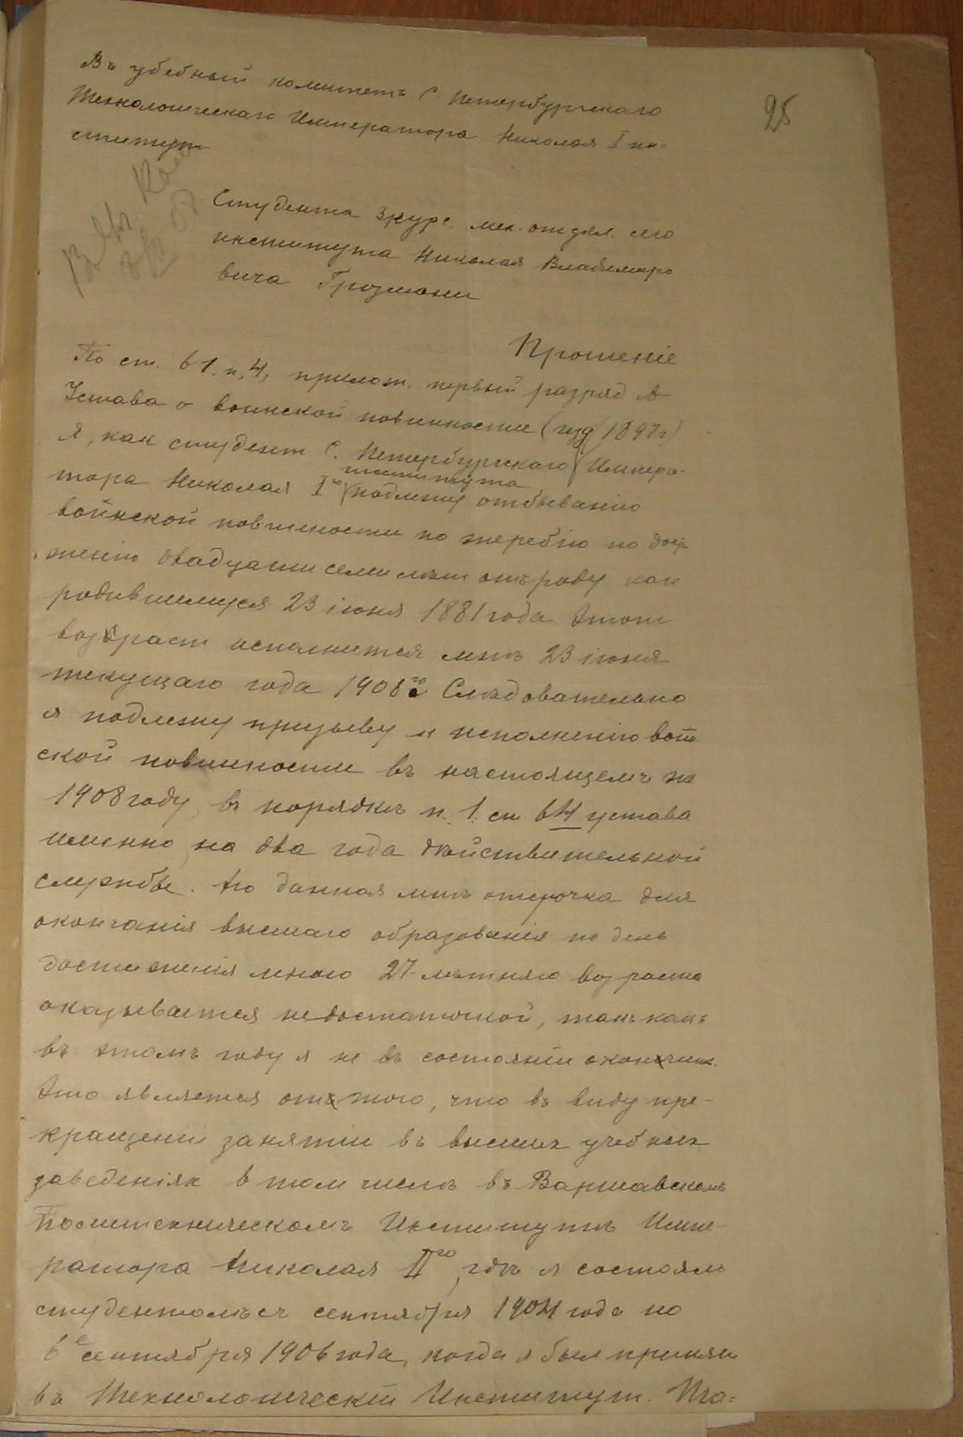 Въ учебный комитетъ С Петербургскаго
Технологическаго Императора Николая I ин-
ститута
25
Студента 3 курс. мех. отдел. сего
института Николая Владимиро
вича
Прошеніе
По ст. 61. п. 4, прилож. первый разряд
Устава о воинской повинности (изд 1897 г)
Я, как студент С. Петербургскаго Импера-
института
тора Николая I го подлежу отбыванію
воинской повинности по жеребію по дост
женіи двадцати семи лѣт отъ роду как
родившемуся 23 іюня 1881 года Этот
возраст исполнится мнѣ 23 іюня
текущаго года 1908 го Слѣдовательно
я подлежу призыву и исполненію воин
ской повинности въ настоящемъ же
1908 году, въ порядкѣ п. 1. ст 64 устава
именно на два года дѣйствительной
службы. Но данная мнѣ отсрочка для
окончанія высшаго образованія по день
достиженія мною 27-лѣтняго возраста
оказывается недостаточной, такъ какъ
въ этомъ году я не въ состояніи окончить.
Это является от того, что въ виду пре-
кращенія занятіи въ высших учебных
заведеніях в том числѣ въ Варшавскомъ
Политехническомъ Институтѣ Импе-
ратора Николая II го, гдѣ я состоялъ
студентомъ съ сентября 1904 года по
6 е сентября 1906 года, когда я был принят
въ Технологическій Институт. Та-